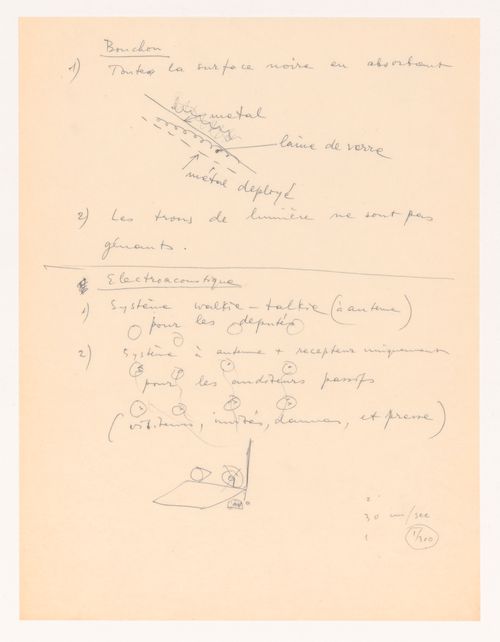 Bouchon
1) Toutes la surface noire en absorbant
metal
laine de verre
métal deployé
2) Les trous de lumière ne sont pas
gênants.
Electroacoustique
1) Système walkie-talkie (à antenne)
pour les députés
2) Système à antenne + recepteur uniquement
pour les auditeurs passifs
(visiteurs, invités, dames, et presse)
30 m/sec
1